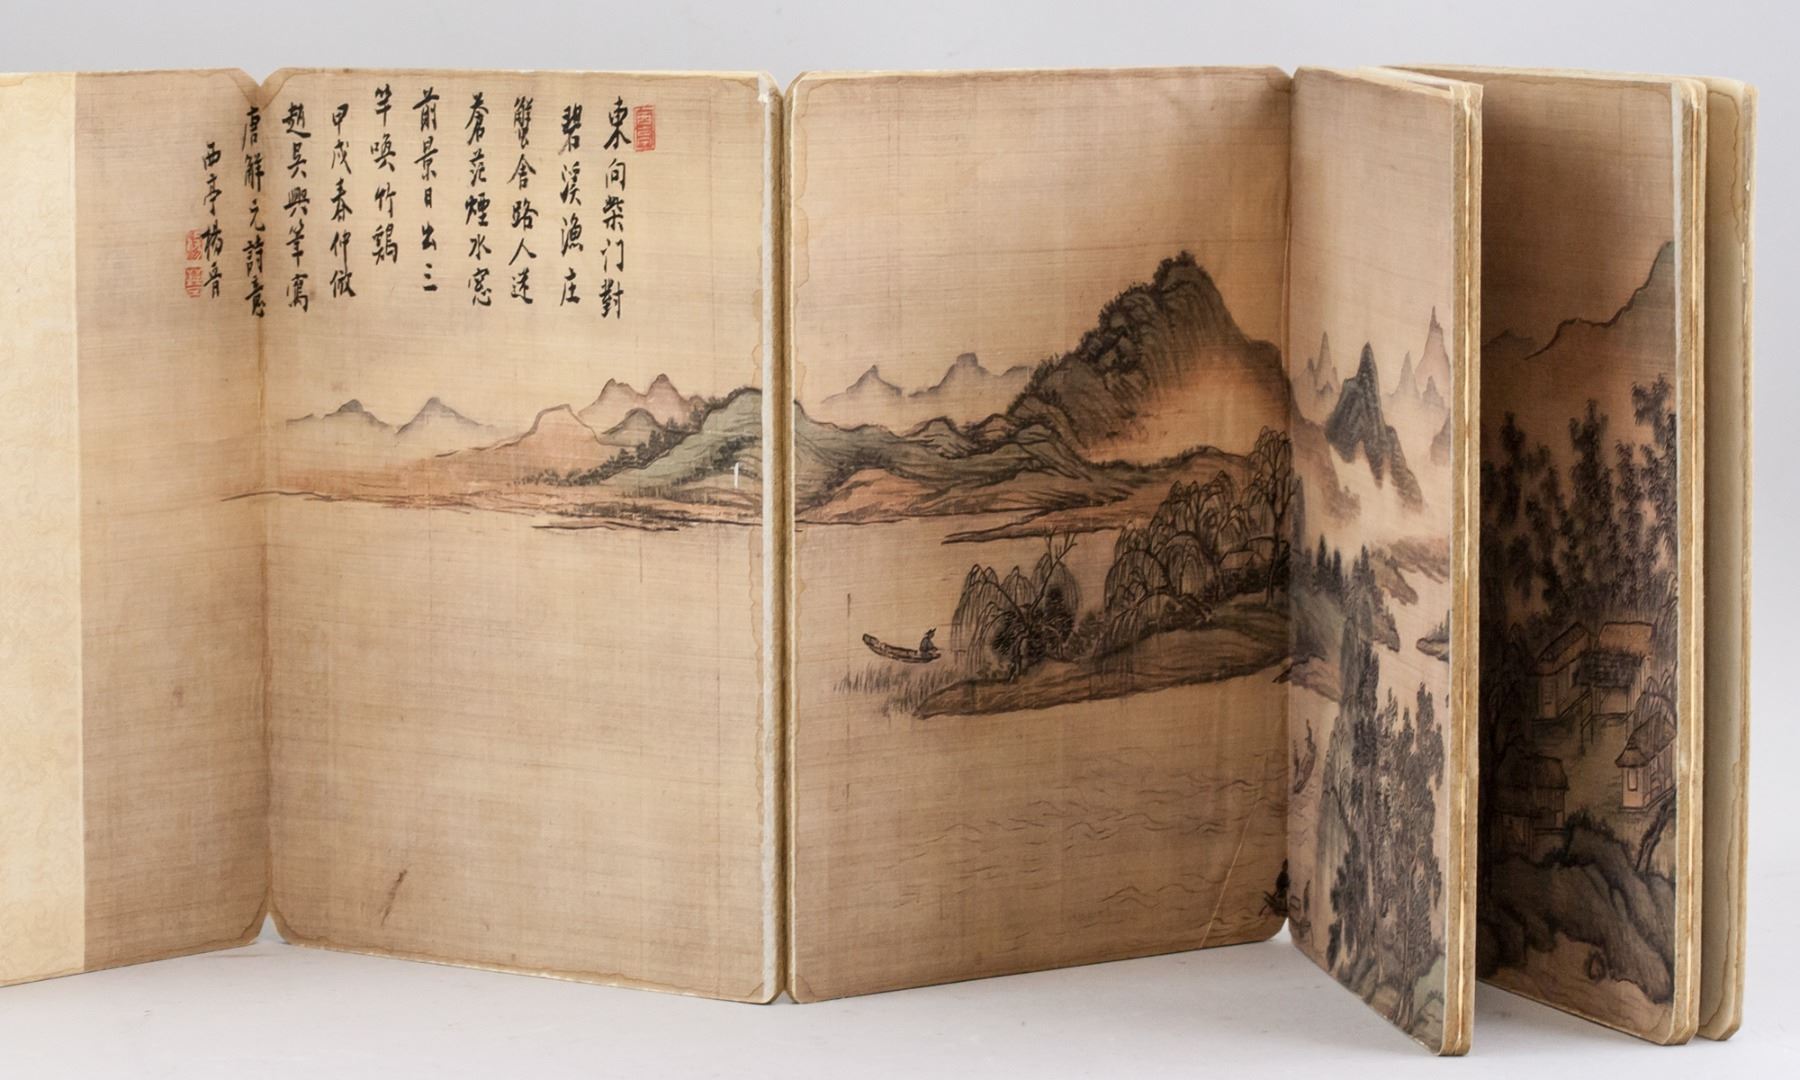 東向柴门對
碧溪漁庄
蟹舍路人迷
蒼茫煙水窓
前景日出三
竿喚竹鷄
甲戌春仲倣
趙吳興筆寫
唐解元詩意
西亭楊晋